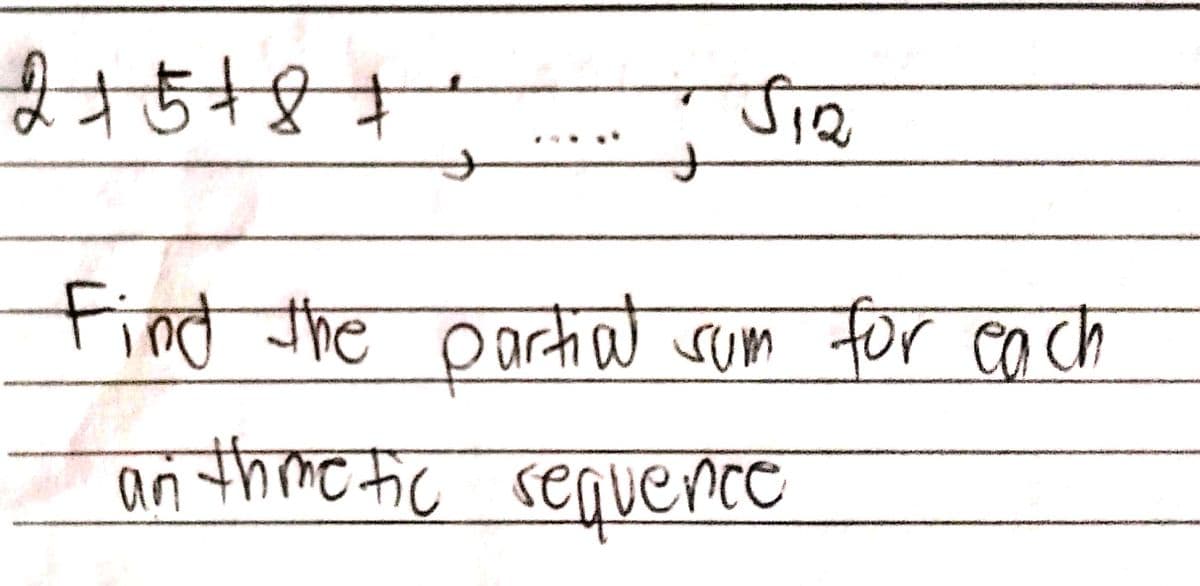 2+5+8+; .....; S12
Find the partial sum for each
arithmetic sequence